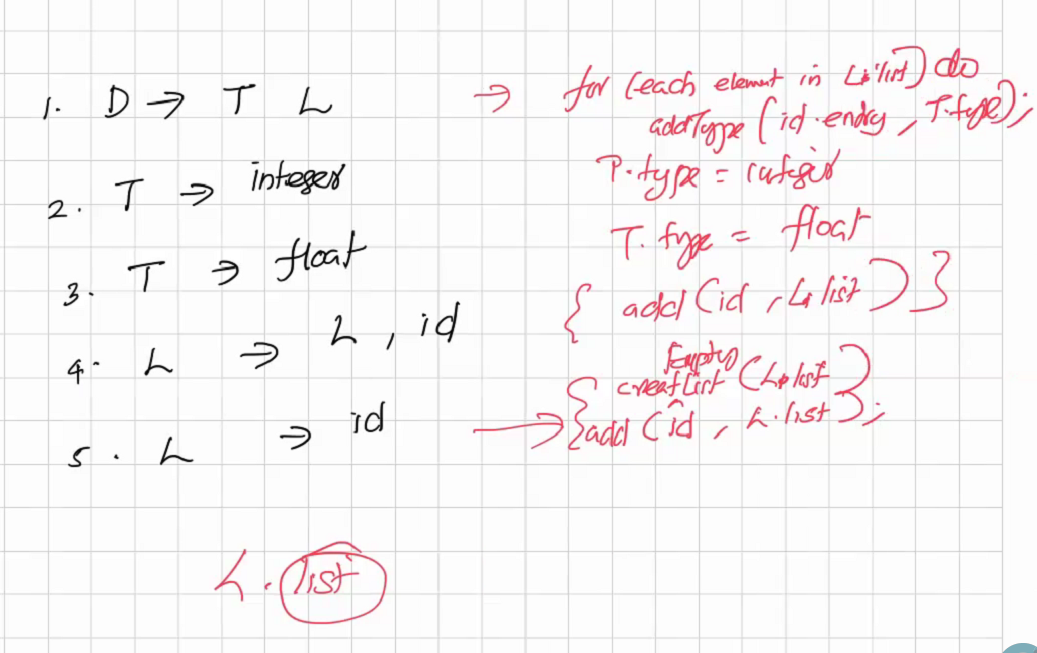 1. D → T L → for (each element in L.list) do
addType (id.entry, T.type);
2. T → integer T.type = integer
3. T → float T.type = float
4. L → L , id { add (id , L.list) }
Empty
{ creatList (L.list)
5. L → id → add (id , L.list); }
L. list